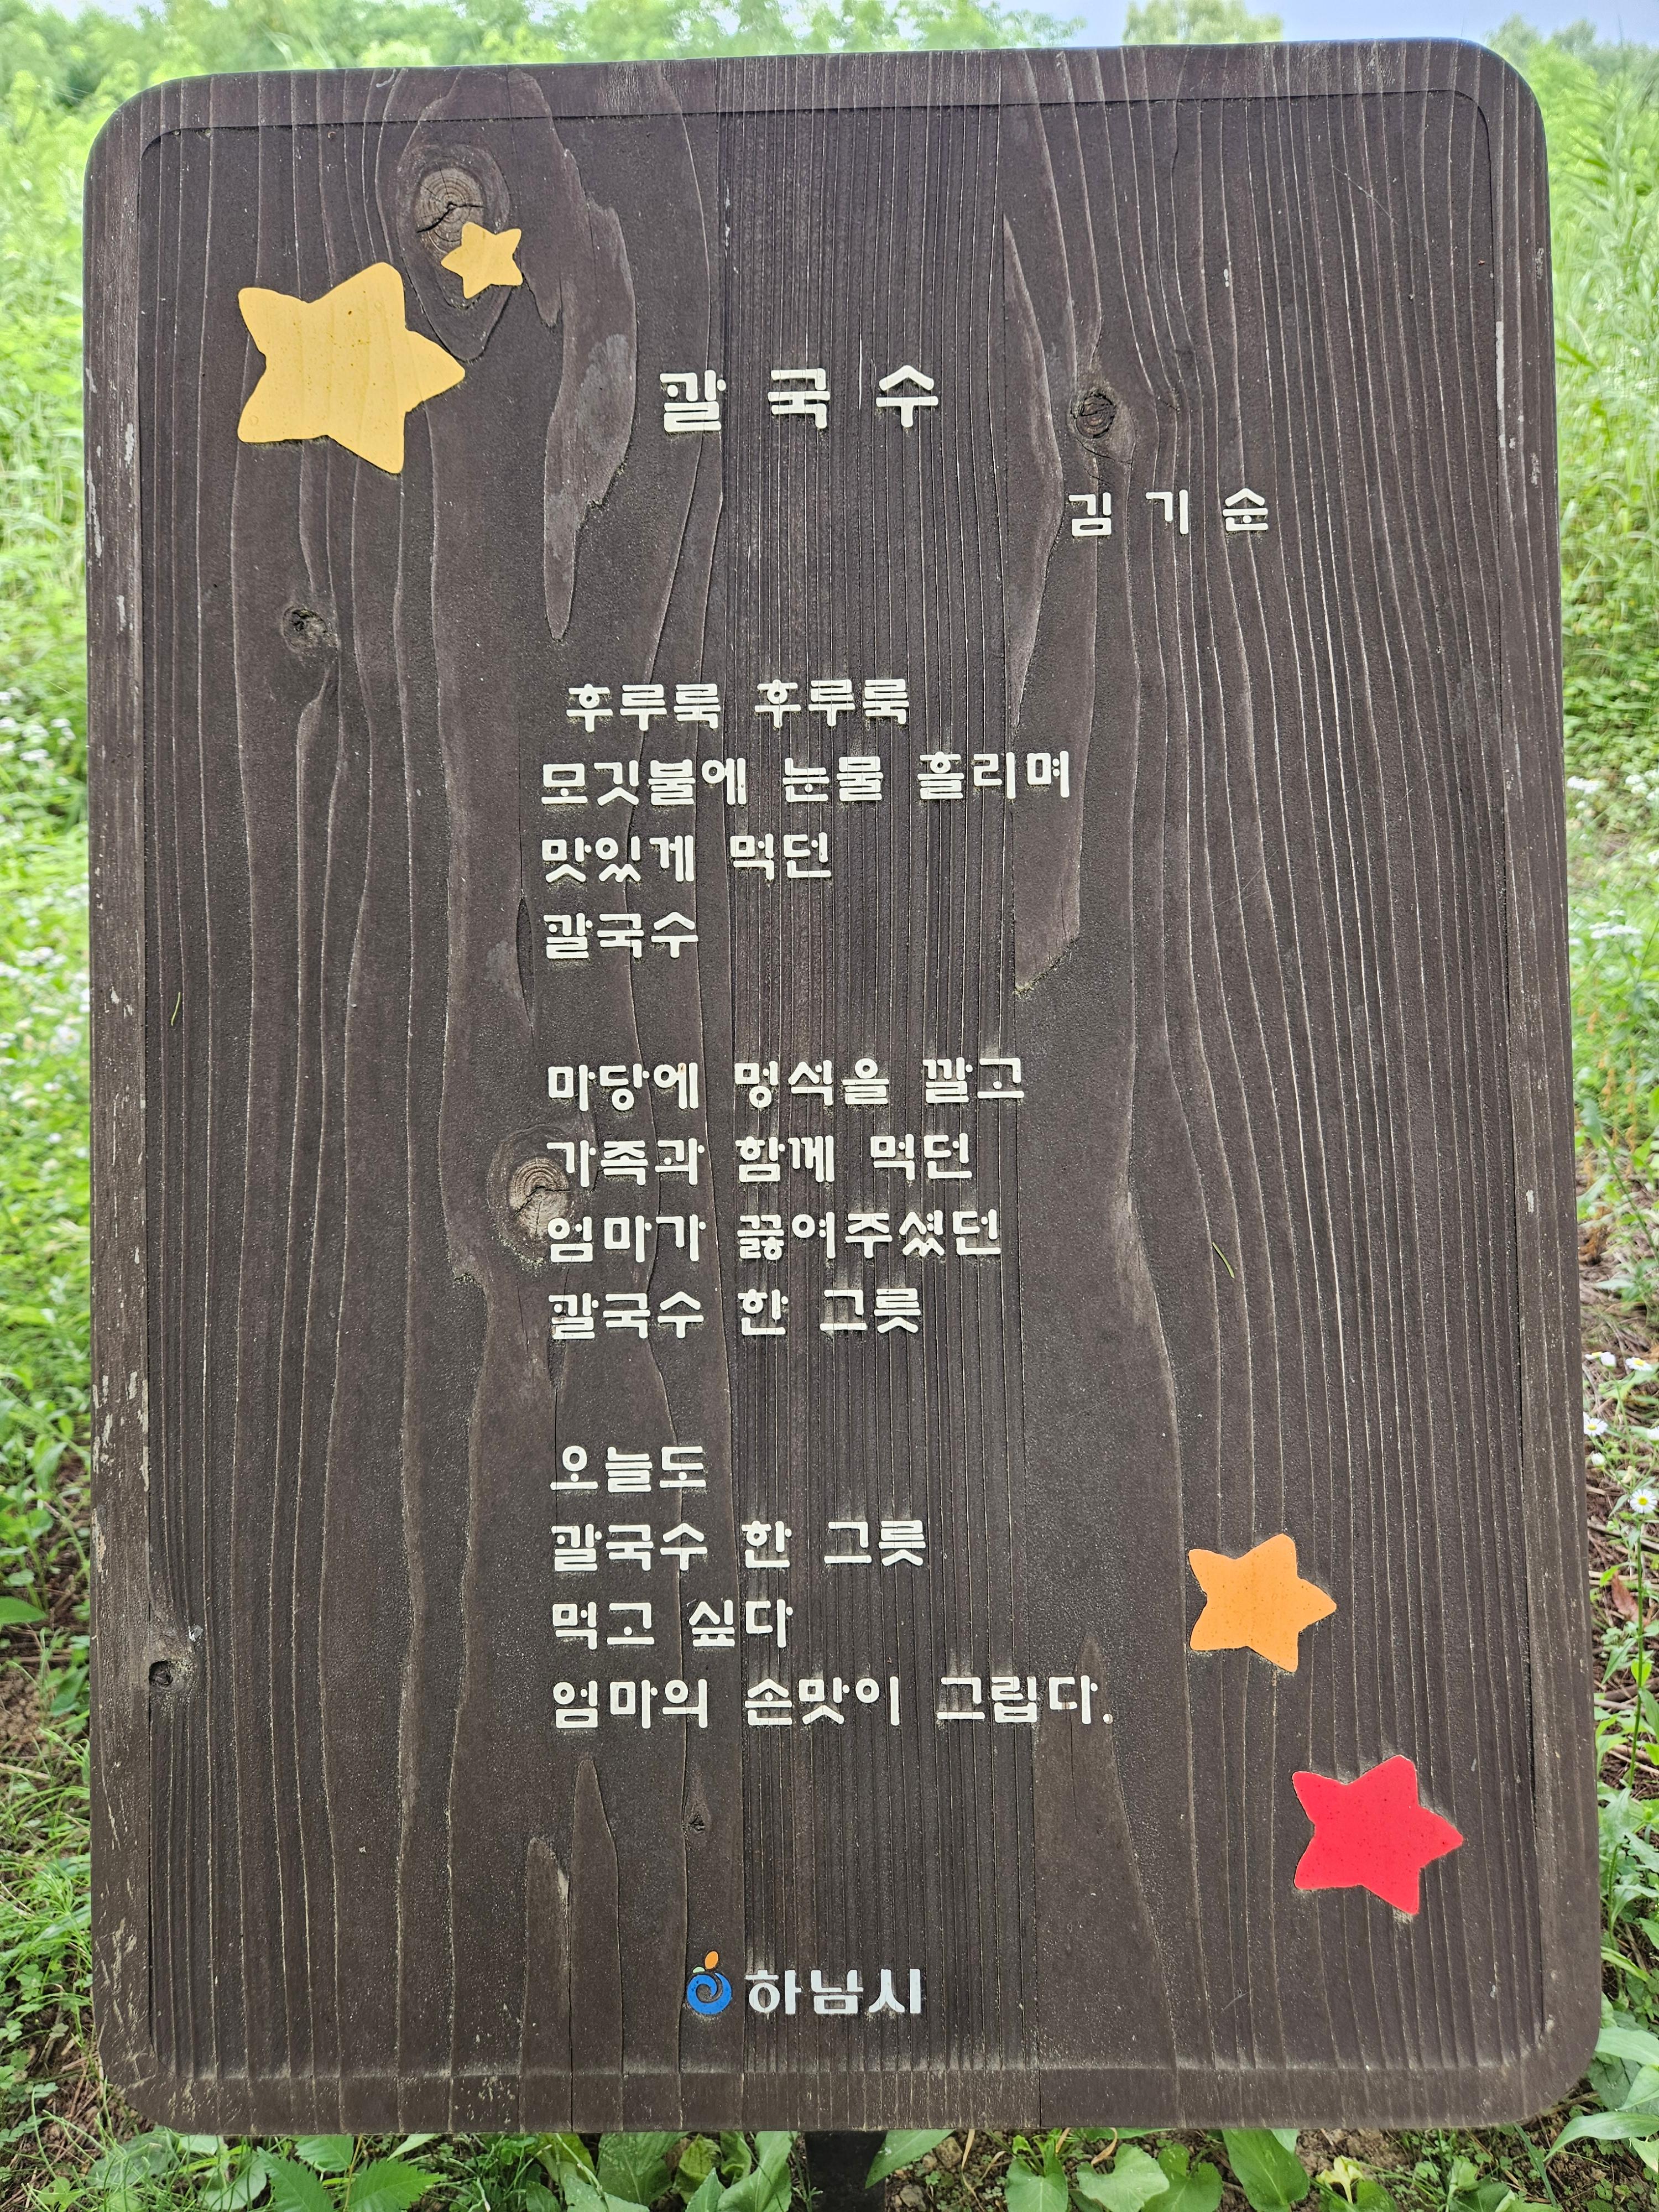 칼 국 수
김 기 순
후루룩 후루룩
모깃불에 눈물 흘리며
맛있게 먹던
칼국수
마당에 멍석을 깔고
가족과 함께 먹던
엄마가 끓여주셨던
칼국수 한 그릇
오늘도
칼국수 한 그릇
먹고 싶다
엄마의 손맛이 그립다.
하남시